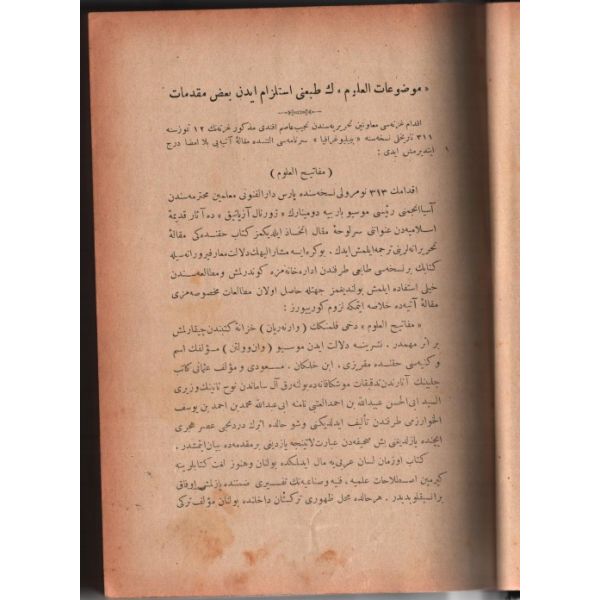 « موضوعات العلوم » ك طبعنى استلزام ايدن بعض مقدمات
اقدام غزته‌سى معاونين تحريريه‌سندن نجيب عاصم افندى مذكور غزته‌نك ١٢ تموزسنه
٣١١ تاريخلى نسخه‌سنه « بيبليوغرافيا » سرنامه‌سى آلتنده مقالهٔ آتيه‌يى بلا امضا درج
ايتديرمش ايدى :
( مفاتيح العلوم )
اقدامك ٣١٣ نومرولى نسخه‌سنده پارس دارالفنونى معلمين محترمه‌سندن
آسيا انجمنى رئيسى موسيو باربيه دومينارك « ژورنال آزياتيق » ده آثار قديمهٔ
اسلاميه‌دن عنوانى سرلوحهٔ مقال اتخاذ ايلديكمز كتاب حقنده‌كى مقالهٔ
تحريرانه‌لرينى ترجمه ايلمش ايدك . بوكره ايسه مشاراليهك دلالت معارفپرورانه‌سيله
كتابك بر نسخه‌سى طابعى طرفندن اداره‌خانه‌مزه كوندرلمش ومطالعه‌سندن
خيلى استفاده ايلمش بولنديغمز جهتله حاصل اولان مطالعات مخصوصه‌مزى
مقالهٔ آتيه‌ده خلاصه ايتمكه لزوم كورييورز :
« مفاتيح العلوم » دخى فلمنكك ( وارنه‌ريان ) خزانهٔ كتبندن چيقارلمش
بر اثر مهمدر . نشرينه دلالت ايدن موسيو ( وان وولتن ) مؤلفك اسم
وكنيه‌سى حقنده مقريزى ، ابن خلكان . مسعودى و مؤلف عثمانى كاتب
چلبينك آثارندن تدقيقات موشكافانه‌ده بولنه‌رق آل ساماندن نوح ثانينك وزيرى
السيد ابى الحسن عبيدالله بن احمد العتبى نامنه ابى عبدالله محمد بن احمد بن يوسف
الخوارزمى طرفندن تأليف ايدلديكنى وشو حالده اثرك دردنجى عصر هجرى
ايچنده يازلديغنى بش صحيفه‌دن عبارت لاتينجه يازديغى بر مقدمه‌ده بيان ايتمشدر .
كتاب اوزمان لسان عربى‌يه مال ايدلمكده بولنان وهنوز لغت كتابلرينه
كيرمين اصطلاحات علميه ، فنيه وصناعيه‌نك تفسيرى ضمننده يازلمش اوفاق
بر انسيقلوپديدر . هر حالده محل ظهورى تركستان داخلنده بولنان مؤلف تركى